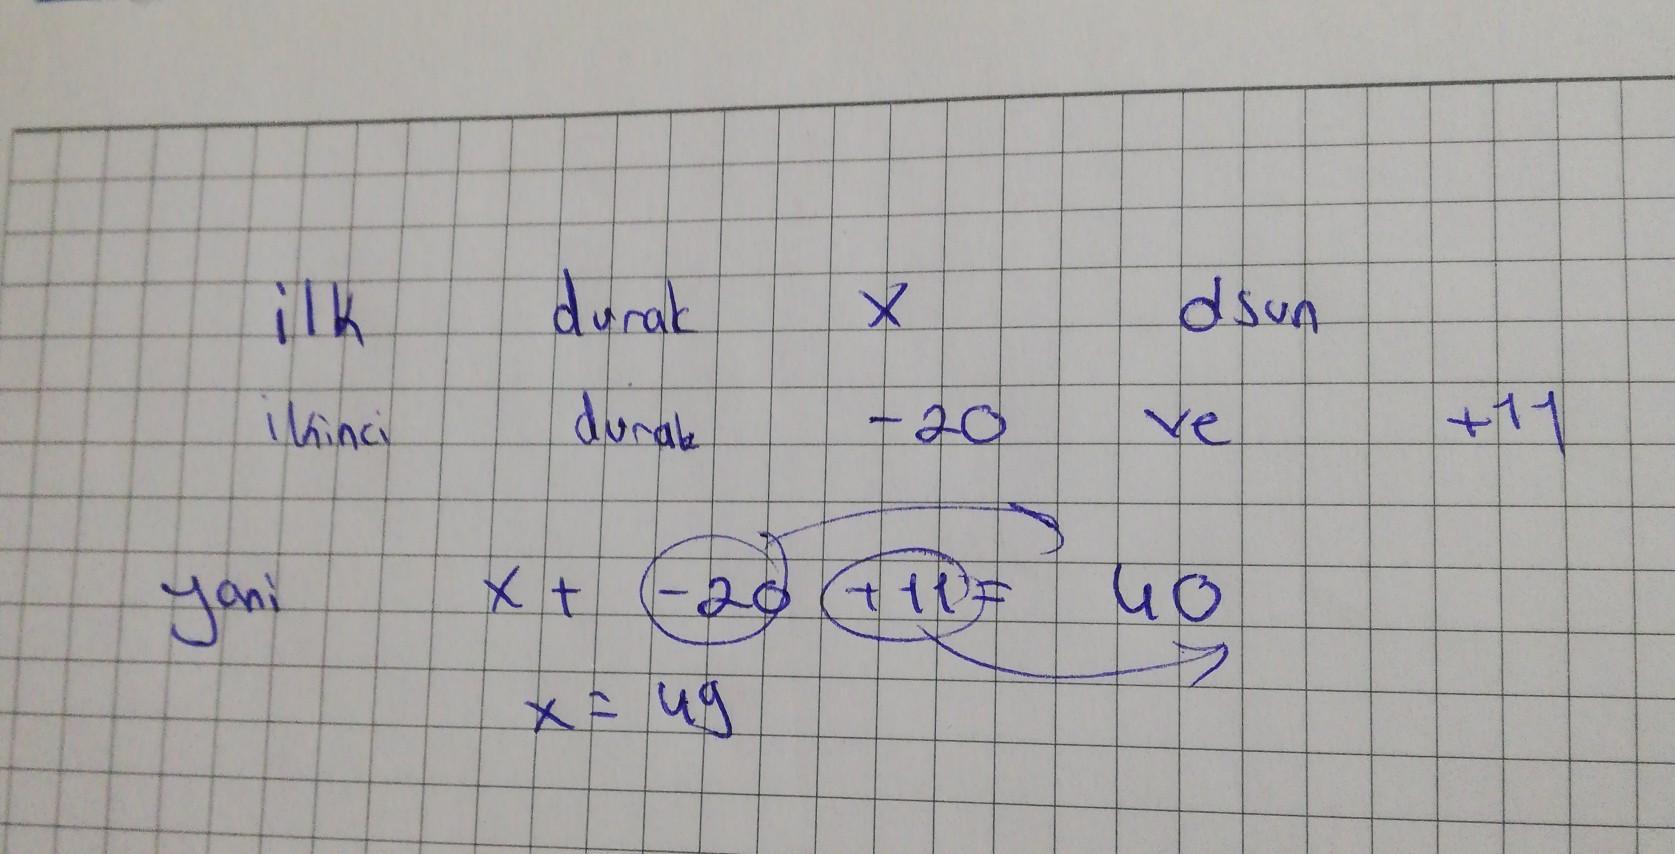 ilk durak x olsun
ikinci durak -20 ve +11
yani x + -20 +11 = 40
x = 49